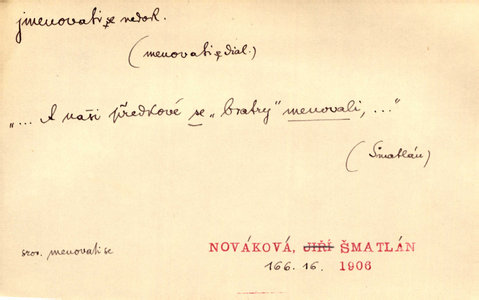 jmenovati se nedok.
(menovati se dial.)
„... A naši předkové se „bratry" menovali, ..."
(Šmatlán)
srov. menovati se
NOVÁKOVÁ, JIŘÍ ŠMATLÁN
166. 16. 1906